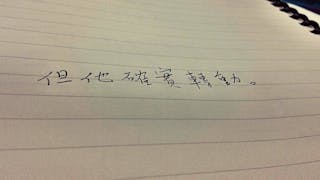 但他確實轉動。